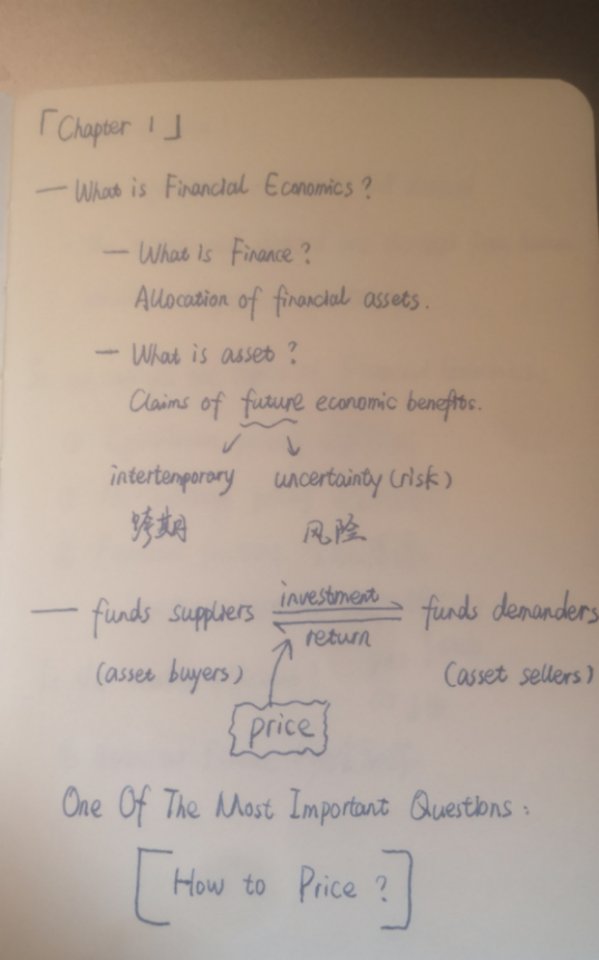 「Chapter 1」
— What is Financial Economics?
— What is Finance?
Allocation of financial assets.
— What is asset?
Claims of future economic benefits.
intertemporary uncertainty (risk)
跨期 风险
— funds suppliers investment funds demanders
return
(asset buyers) (asset sellers)
price
One Of The Most Important Questions:
[How to Price?]